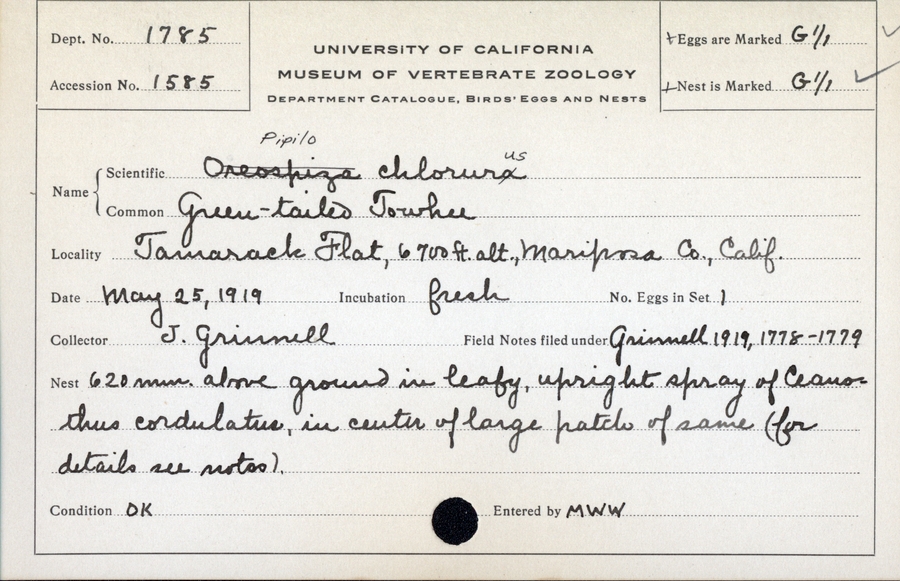 Dept. No. 1785
Accession No. 1585
UNIVERSITY OF CALIFORNIA
MUSEUM OF VERTEBRATE ZOOLOGY
DEPARTMENT CATALOGUE, BIRDS' EGGS AND NESTS
Eggs are Marked G 1/1
Nest is Marked G 1/1
Pipilo
Name Scientific Oreospiza chlorura us
Common Green-tailed Towhee
Locality Tamarack Flat, 6700 ft. alt., Mariposa Co., Calif.
Date May 25, 1919 Incubation fresh No. Eggs in Set 1
Collector J. Grinnell Field Notes filed under Grinnell 1919, 1778-1779
Nest 620 mm. above ground in leafy, upright spray of Ceano=
thus cordulatus, in center of large patch of same (for
details see notes).
Condition OK Entered by MWW